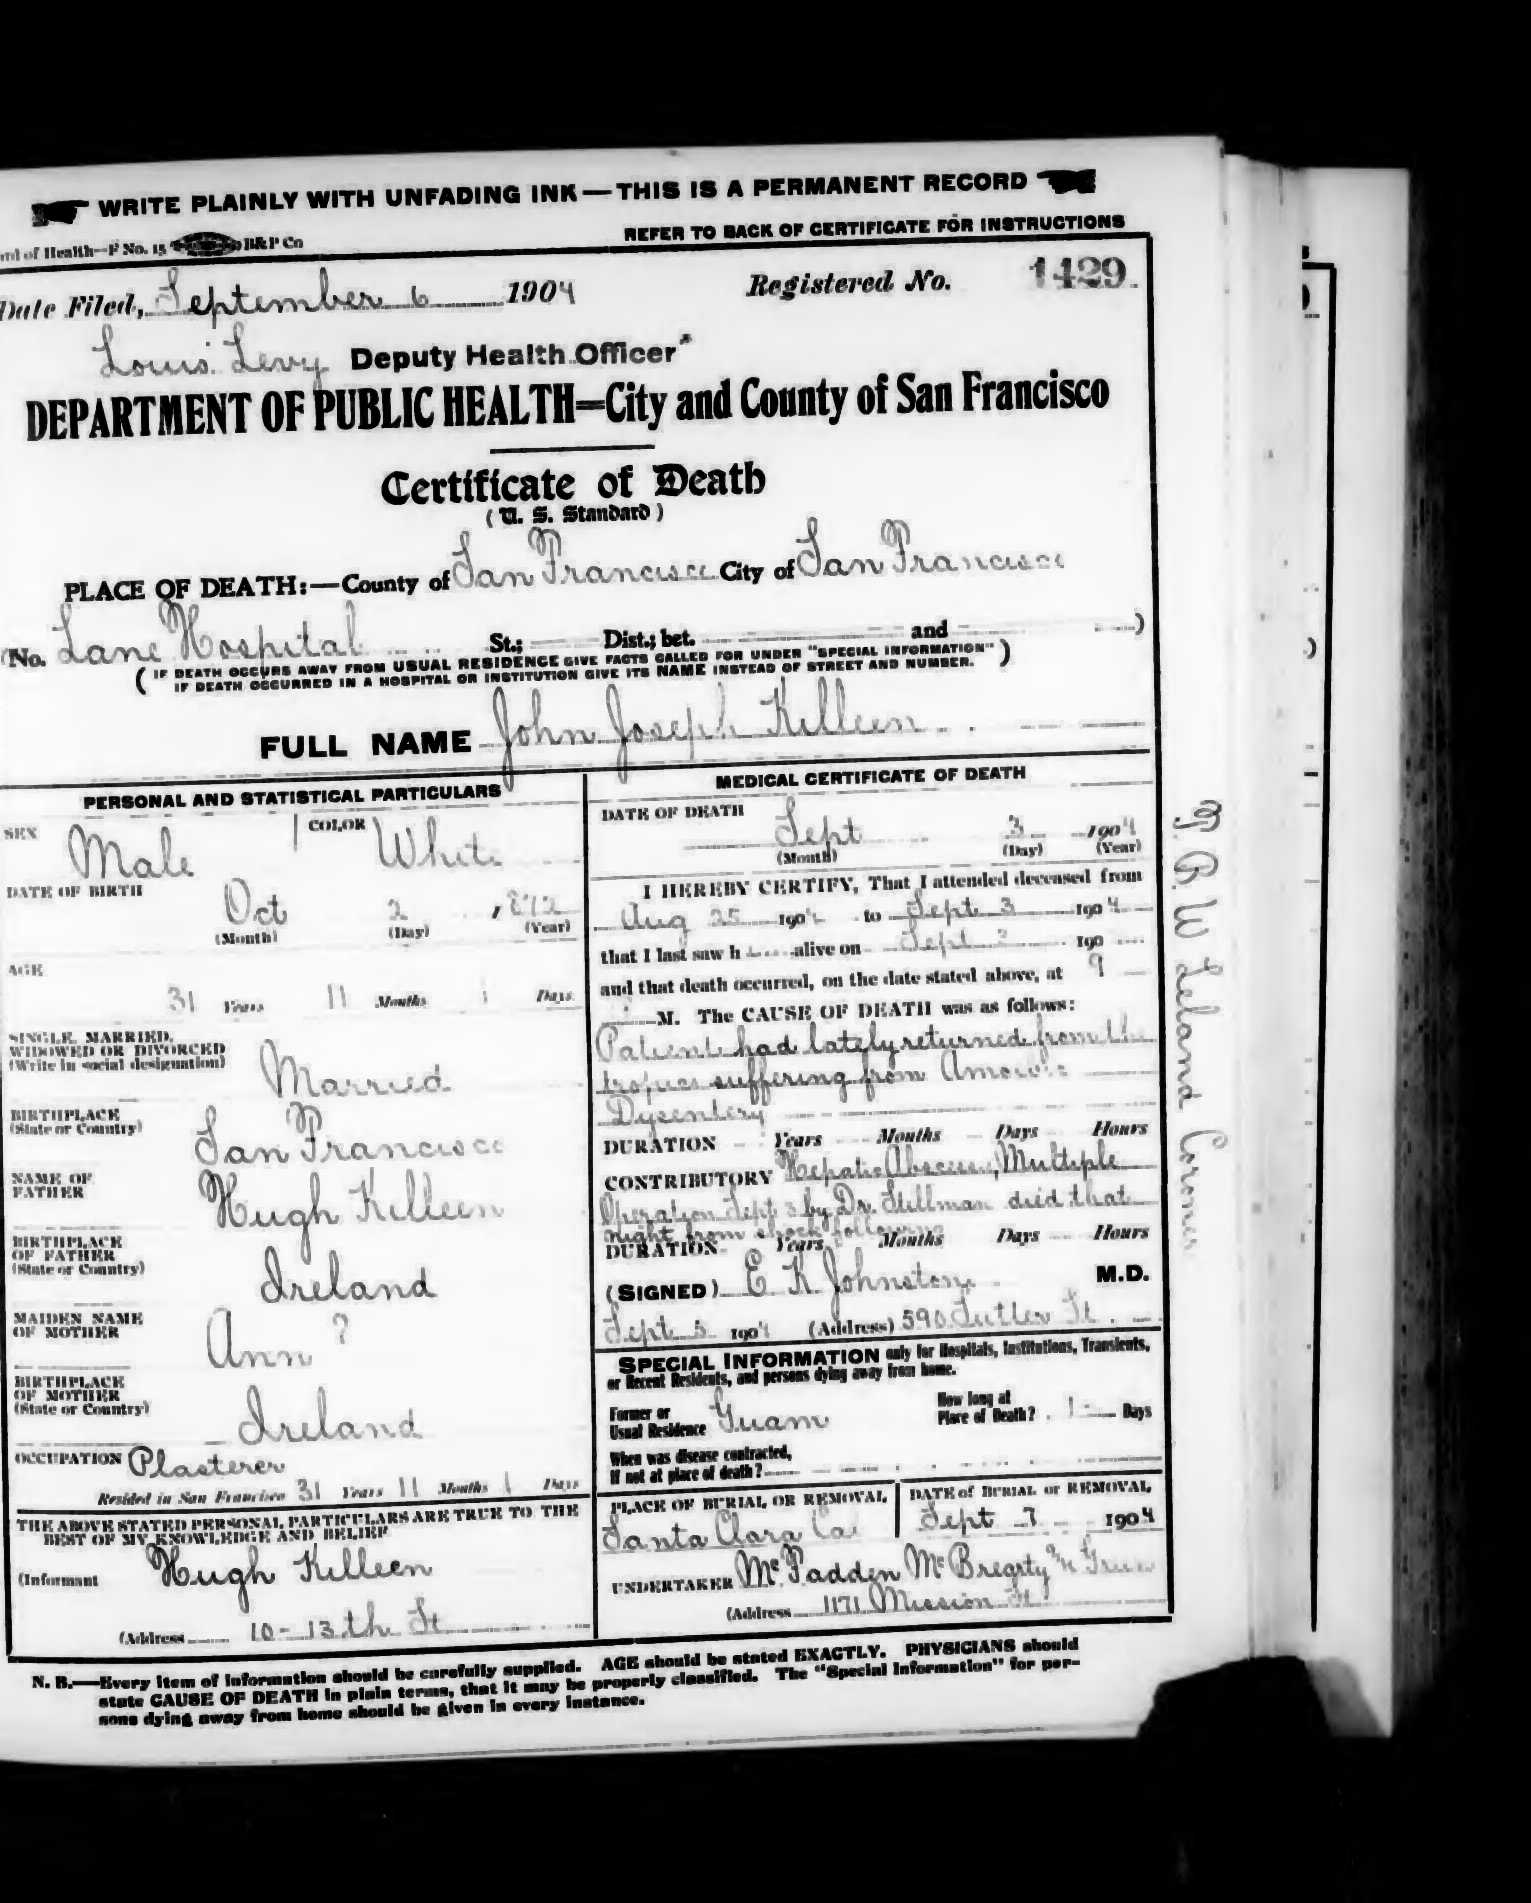 WRITE PLAINLY WITH UNFADING INK — THIS IS A PERMANENT RECORD
of Health—F No. 15 B&P Co
REFER TO BACK OF CERTIFICATE FOR INSTRUCTIONS
Date Filed, September 6 1904
Registered No. 1429
Louis Levy Deputy Health Officer
DEPARTMENT OF PUBLIC HEALTH=City and County of San Francisco
Certificate of Death
( U. S. Standard )
PLACE OF DEATH:—County of San Francisco City of San Francisco
(No. Lane Hospital St.; Dist.; bet. and )
( IF DEATH OCCURS AWAY FROM USUAL RESIDENCE GIVE FACTS CALLED FOR UNDER "SPECIAL INFORMATION" )
IF DEATH OCCURRED IN A HOSPITAL OR INSTITUTION GIVE ITS NAME INSTEAD OF STREET AND NUMBER.
FULL NAME John Joseph Killeen
PERSONAL AND STATISTICAL PARTICULARS
SEX Male COLOR White
DATE OF BIRTH
Oct 2 , 1872
(Month) (Day) (Year)
AGE
31 Years 11 Months 1 Days
SINGLE, MARRIED,
WIDOWED OR DIVORCED
(Write in social designation) Married
BIRTHPLACE
(State or Country) San Francisco
NAME OF
FATHER Hugh Killeen
BIRTHPLACE
OF FATHER
(State or Country) Ireland
MAIDEN NAME
OF MOTHER Ann ?
BIRTHPLACE
OF MOTHER
(State or Country) Ireland
OCCUPATION Plasterer
Resided in San Francisco 31 Years 11 Months 1 Days
THE ABOVE STATED PERSONAL PARTICULARS ARE TRUE TO THE
BEST OF MY KNOWLEDGE AND BELIEF
(Informant Hugh Killeen
(Address 10 - 13th St
MEDICAL CERTIFICATE OF DEATH
DATE OF DEATH
Sept 3 1904
(Month) (Day) (Year)
I HEREBY CERTIFY, That I attended deceased from
Aug 25 1904 to Sept 3 1904
that I last saw h alive on Sept 3 190
and that death occurred, on the date stated above, at 9
M. The CAUSE OF DEATH was as follows:
Patient had lately returned from the
tropics suffering from Amoebic
Dysentery
DURATION Years Months Days Hours
CONTRIBUTORY Hepatic Abscess, Multiple
Operation Sept 3 by Dr. Stillman died that
night from shock following
DURATION Years Months Days Hours
(SIGNED) E K Johnstone M.D.
Sept 5 1904 (Address) 590 Sutter St
SPECIAL INFORMATION only for Hospitals, Institutions, Transients,
or Recent Residents, and persons dying away from home.
Former or
Usual Residence Guam
How long at
Place of Death? Days
When was disease contracted,
If not at place of death?
PLACE OF BURIAL OR REMOVAL
Santa Clara Cal
DATE of BURIAL or REMOVAL
Sept 7 1904
UNDERTAKER McFadden McBrearty & Green
(Address 1171 Mission St
T. B. W Leland Coroner
N. B.—Every item of information should be carefully supplied. AGE should be stated EXACTLY. PHYSICIANS should
state CAUSE OF DEATH in plain terms, that it may be properly classified. The "Special Information" for per-
sons dying away from home should be given in every instance.